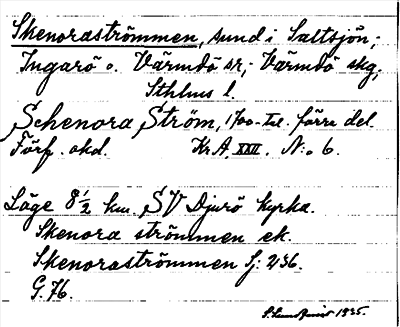 Skenoraströmmen, sund i Saltsjön;
Ingarö o. Värmdö sr; Värmdö skg,
Sthlms l.
Schenora Ström, 1700-tal. förra del.
Förf. okd. Kr.A. XXII. N:o 6.
Läge 8 1/2 km. SV Djurö kyrka.
Skenora strömmen ek.
Skenoraströmmen Sj: 236.
G. 76.
1935.